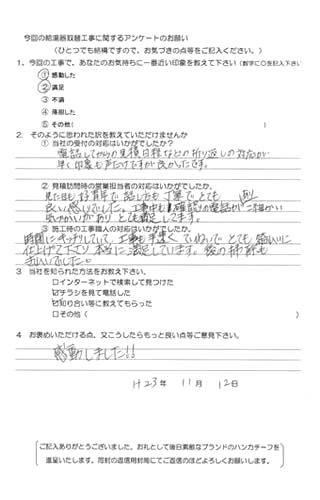 今回の給湯器取替工事に関するアンケートのお願い
(ひとつでも結構ですので、お気づきの点等をご記入ください。)
1、今回の工事で、あなたのお気持ちに一番近い印象を教えて下さい(数字に○を記入下さい
① 感動した
② 満足
③ 不満
④ 落胆した
⑤ その他(
2. そのように思われた訳を教えていただけませんか
① 当社の受付の対応はいかがでしたか。
電話してからの見積日程などの折り返しの対応が
早く印象も声だけですが良かったです。
② 見積訪問時の営業担当者の対応はいかがでしたか。
見た目も好青年で話し方も丁寧でとても
良い感じでした。工事中も確認の電話が
気づかいがありとても満足してます。
③ 施工時の工事職人の対応はいかがでしたか。
時間にぴったりしていて、工事も手早くていねいでとても綺麗に
仕上げて下さり本当に満足しています。後の掃除も
きれいでした。
3 当社を知られた方法をお教え下さい。
□インターネットで検索して見つけた
☑チラシを見て電話した
☑知り合い等に教えてもらった
□その他(
4 お褒めいただける点、又こうしたらもっと良い点等ご意見下さい。
感動しました!!
H23年 11月 12日
ご記入ありがとうございました。お礼として後日素敵なブランドのハンカチーフを
進呈いたします。同封の返信用封筒にてご返信のほどよろしくお願いします。